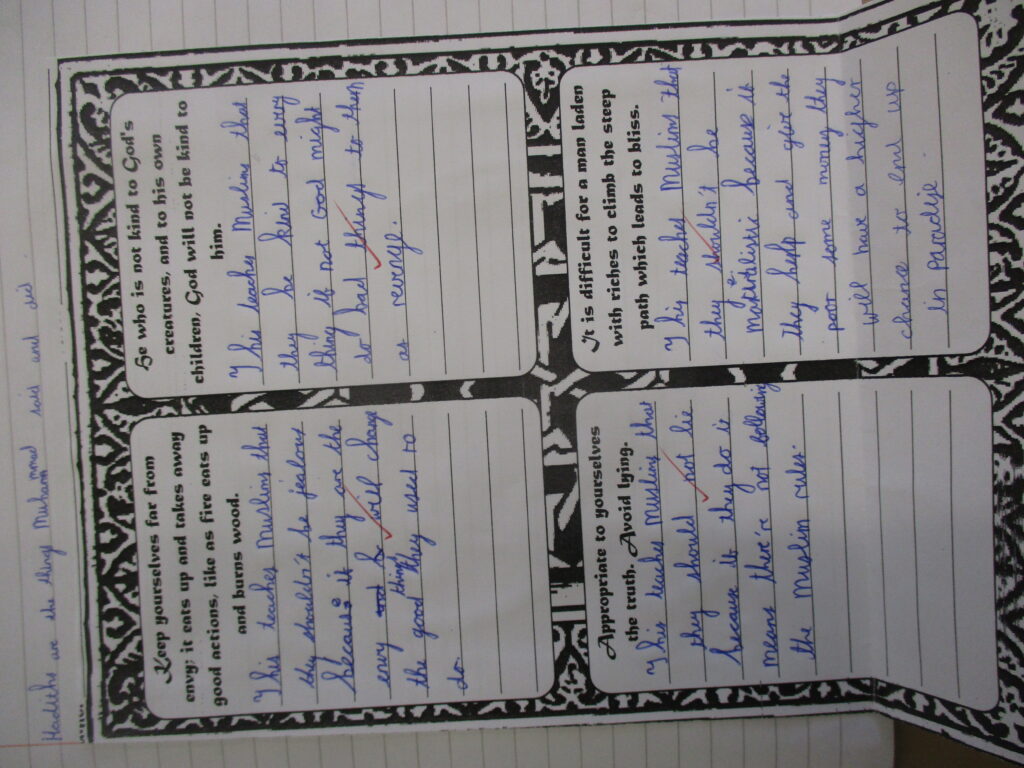 Hadiths are the things Muhammad said and did
Keep yourselves far from
envy; it eats up and takes away
good actions, like as fire eats up
and burns wood.
This teaches Muslims that
they shouldn't be jealous
because if they are the
envy will change
the good things they used to
do
He who is not kind to God's
creatures, and to his own
children, God will not be kind to
him.
This teaches Muslims that
they be kind to every
thing if not God might
do bad things to them
as reveng.
Appropriate to yourselves
the truth. Avoid lying.
This teaches Muslims that
they should not lie
because if they do it
means there're not following
the Muslim rules.
It is difficult for a man laden
with riches to climb the steep
path which leads to bliss.
This teaches Muslims that
they shouldn't be
because if
they help and give the
poor some money they
will have a higher
chance to end up
in Paradise.